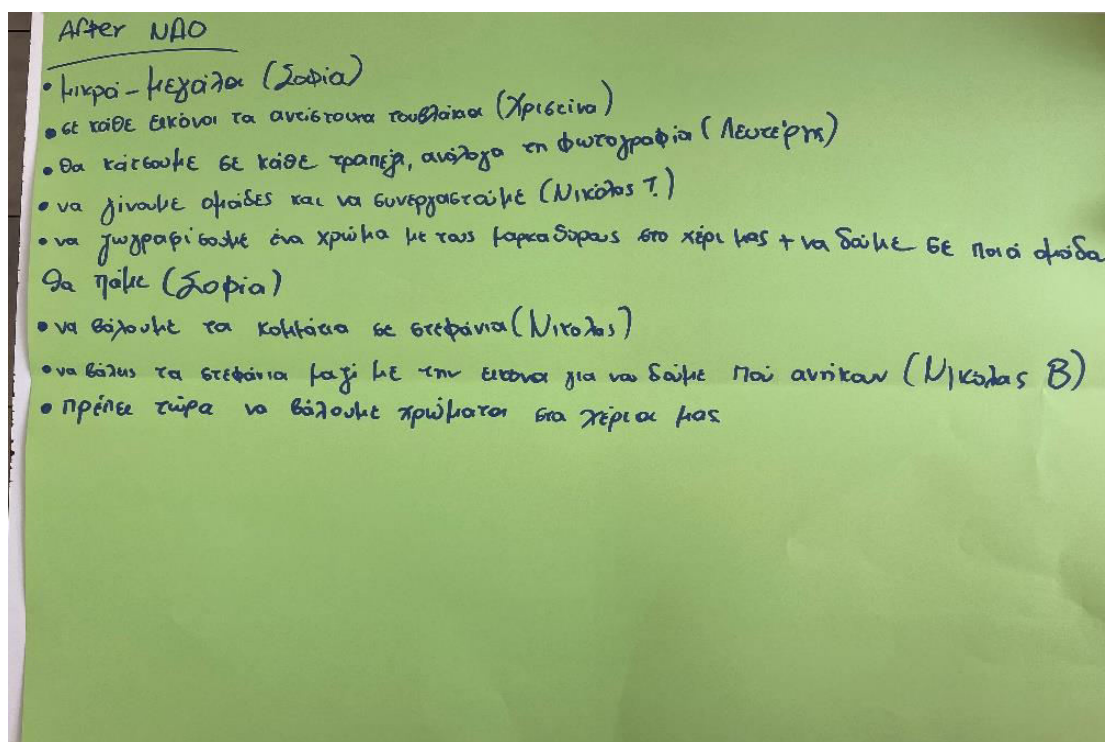 After NAO
• μικρά - μεγάλα (Σοφία)
• σε κάθε εικόνα τα αντίστοιχα τουβλάκια (Χριστίνα)
• θα κάτσουμε σε κάθε τραπέζι, ανάλογα τη φωτογραφία (Λευτέρης)
• να γίνουμε ομάδες και να συνεργαστούμε (Νικόλας Τ.)
• να ζωγραφίσουμε ένα χρώμα με τους μαρκαδόρους στο χέρι μας + να δούμε σε ποιά ομάδα
θα πάμε (Σοφία)
• να βάλουμε τα κομμάτια σε στεφάνια (Νικόλας)
• να βάλεις τα στεφάνια μαζί με την εικόνα για να δούμε που ανήκουν (Νικόλας Β)
• πρέπει τώρα να βάλουμε χρώματα στα χέρια μας